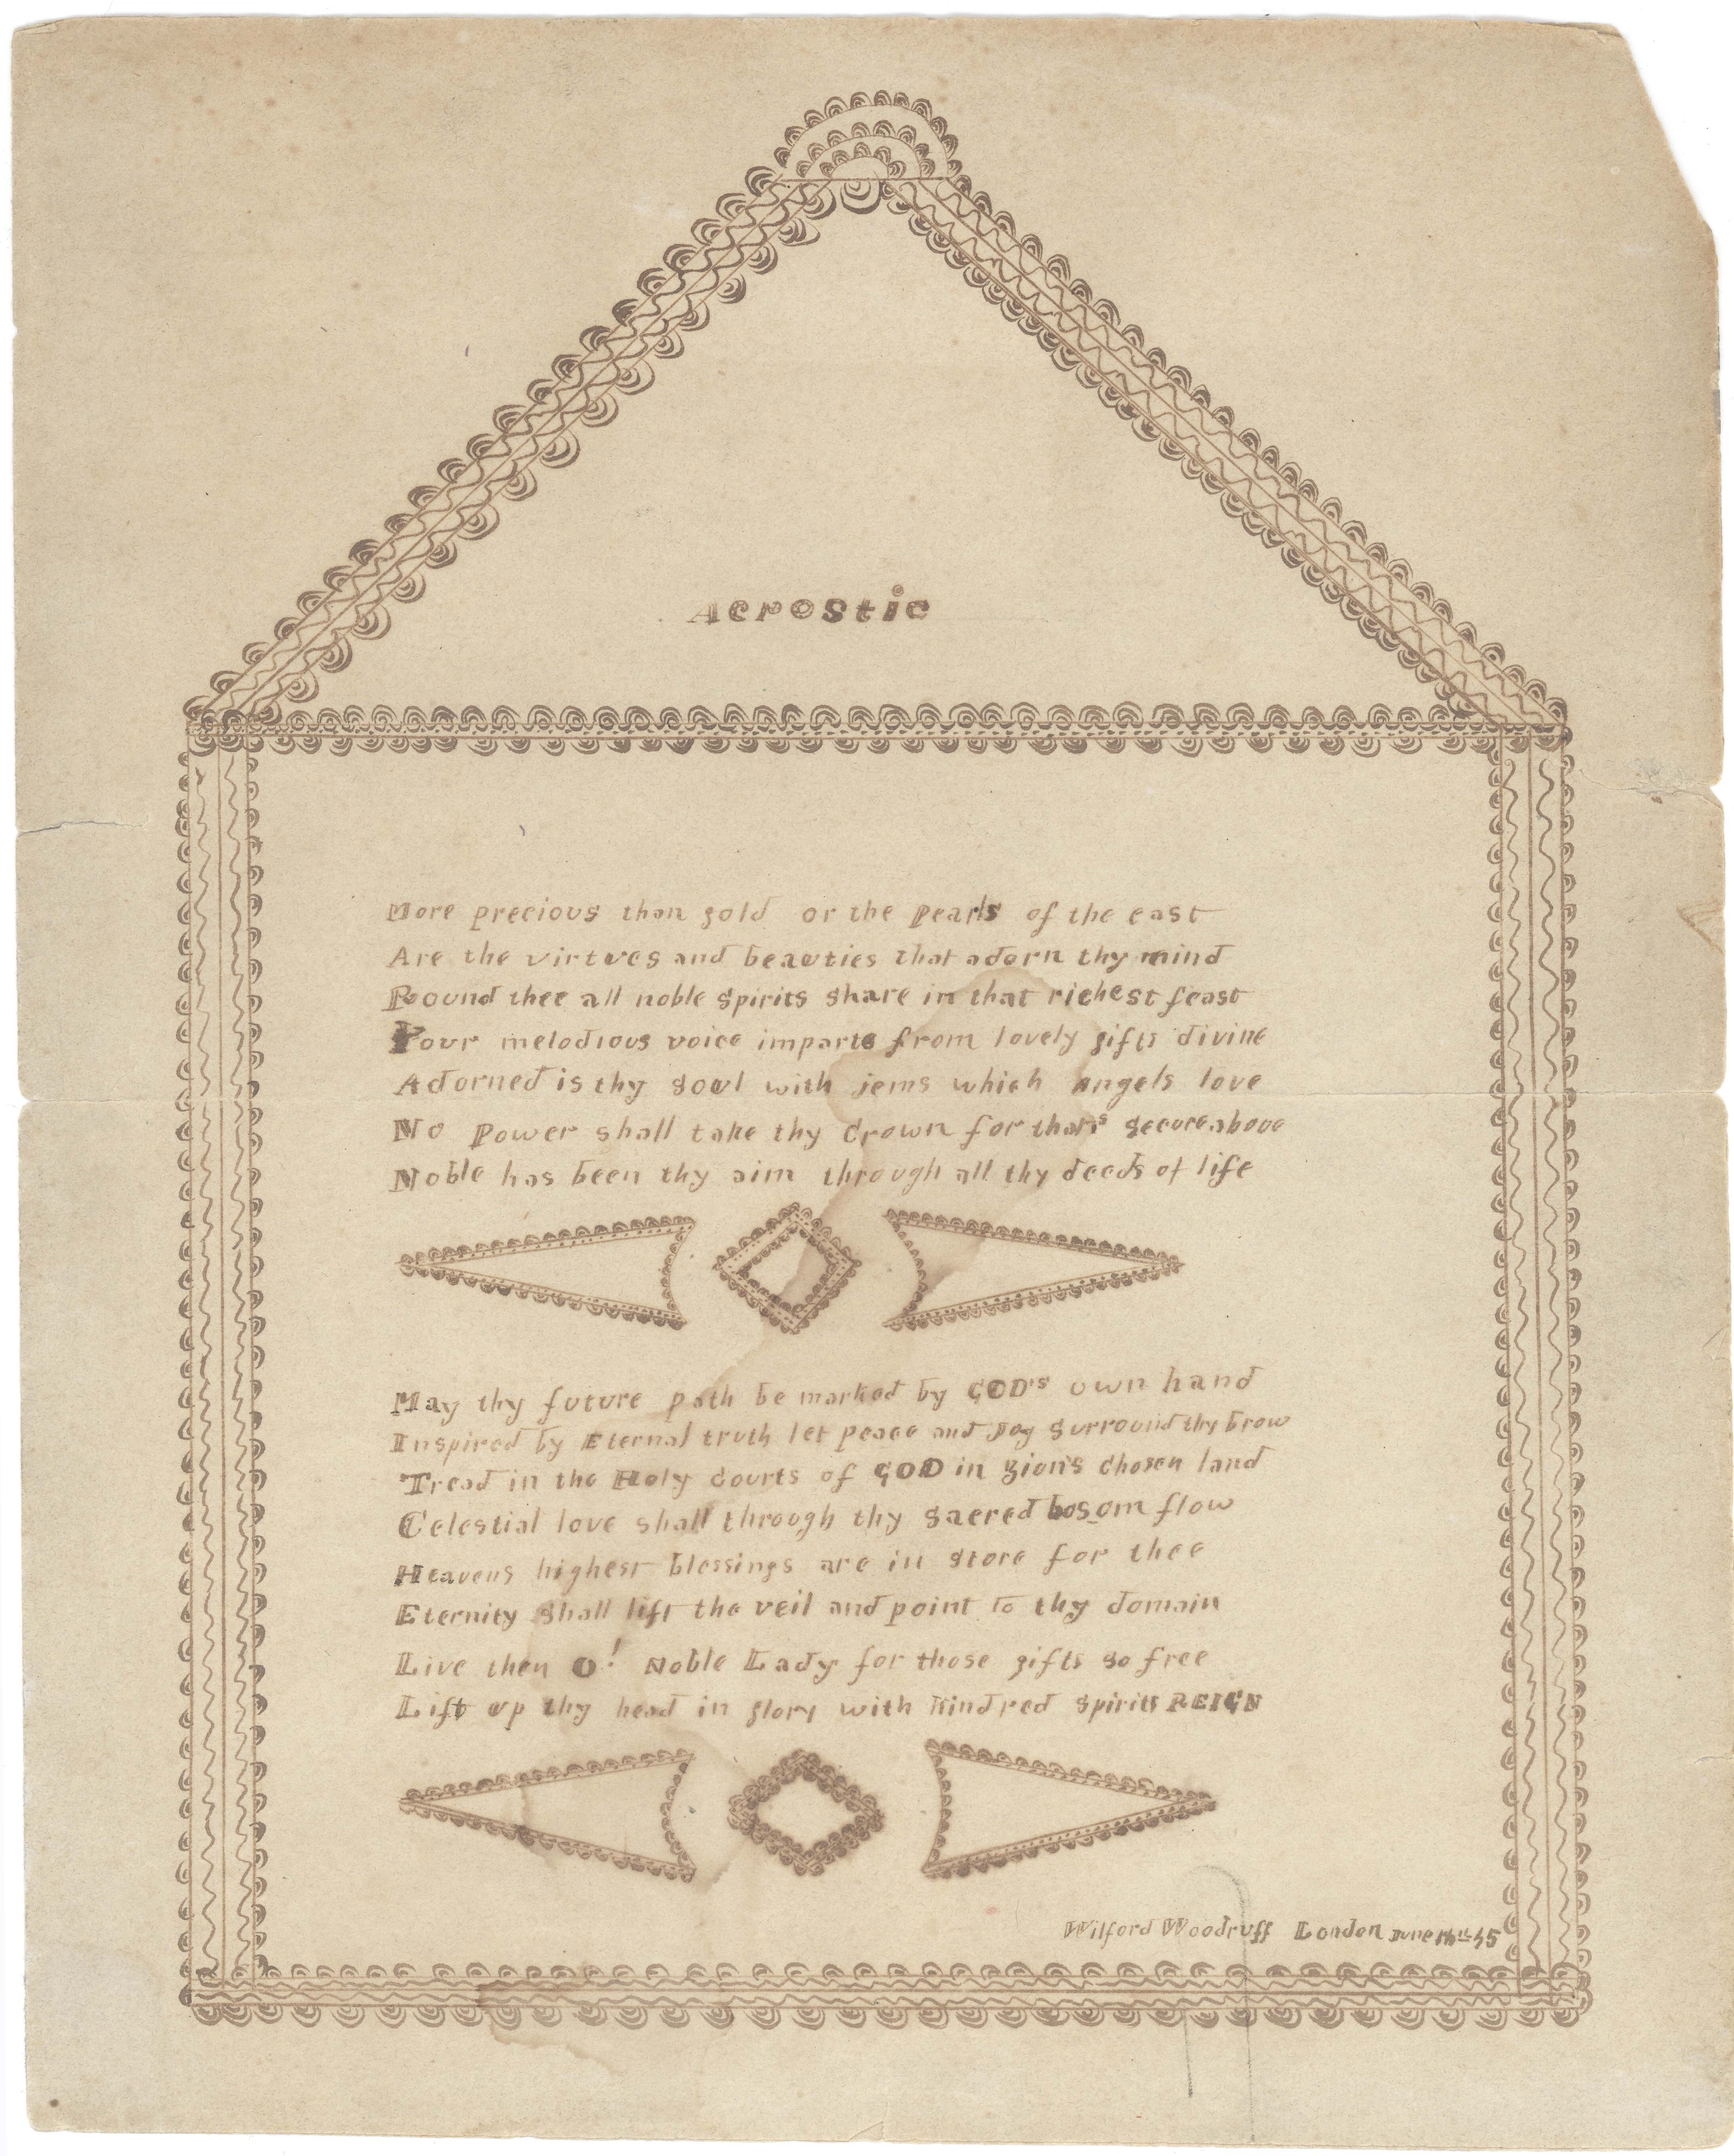 Acrostic
More precious than gold or the Pearls of the east
Are the virtues and beauties that adorn thy mind
Round thee all noble spirits share in that richest feast
Your melodious voice imparts from lovely gifts divine
Adorned is thy soul with jems which angels love
No Power shall take thy Crown for that's secure above
Noble has been thy aim through all thy deeds of life
May thy future path be marked by GOD's own hand
Inspired by Eternal truth let peace and Joy Surround thy brow
Tread in the Holy Courts of GOD in Zion's Chosen land
Celestial love shall through thy Sacred bosom flow
Heavens highest blessings are in store for thee
Eternity shall lift the veil and point to thy domain
Live then O! Noble Lady for those gifts so free
Lift up thy head in glory with Kindred Spirits REIGN
Wilford Woodruff London June 45